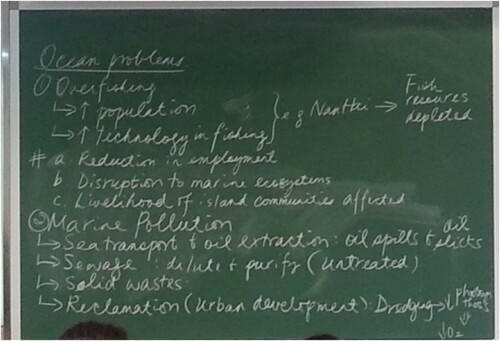 Ocean problems
① Overfishing
↳ ↑ population
↳ ↑ technology in fishing } e.g Nanhai → Fish resources depleted
# a. Reduction in employment
b Disruption to marine ecosystems
c. Livelihood of island communities affected
② Marine Pollution
↳ Sea transport & oil extraction: oil spills & oil slicks
↳ Sewage: dilute & purify (untreated)
↳ Solid wastes
↳ Reclamation (urban development): Dredging → ↓ photosynthesis
↓ O₂